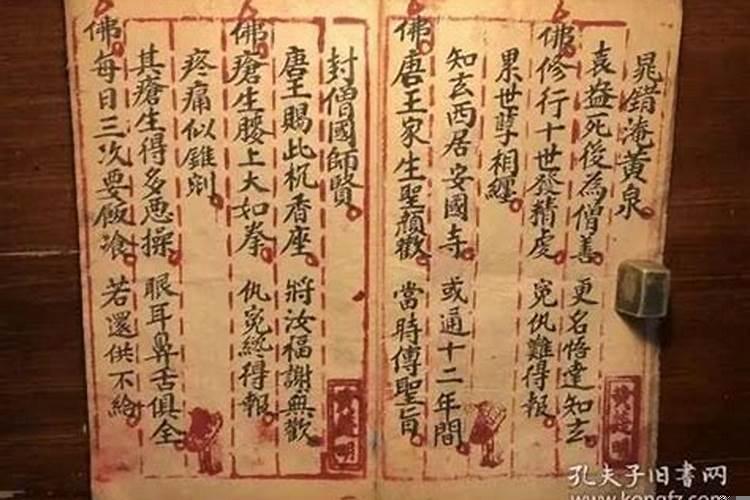 晁錯淹黄泉
袁盎死後為僧善 更名悟達知玄
佛修行十世發精虔 寃仇難得報
累世孽相纏
知玄西居安國寺 或通十二年間
佛唐王家生聖顏歡 當時傳聖旨
封僧國師賢
唐王賜此杌香座 將汝福謝無歡
佛瘡生腰上大如拳 仇寃終得報
疼痛似錐剜
其瘡生得多思操 眼耳鼻舌俱全
佛每日三次要飯飡 若還供不給
孔夫子旧書网
www.kongfz.com